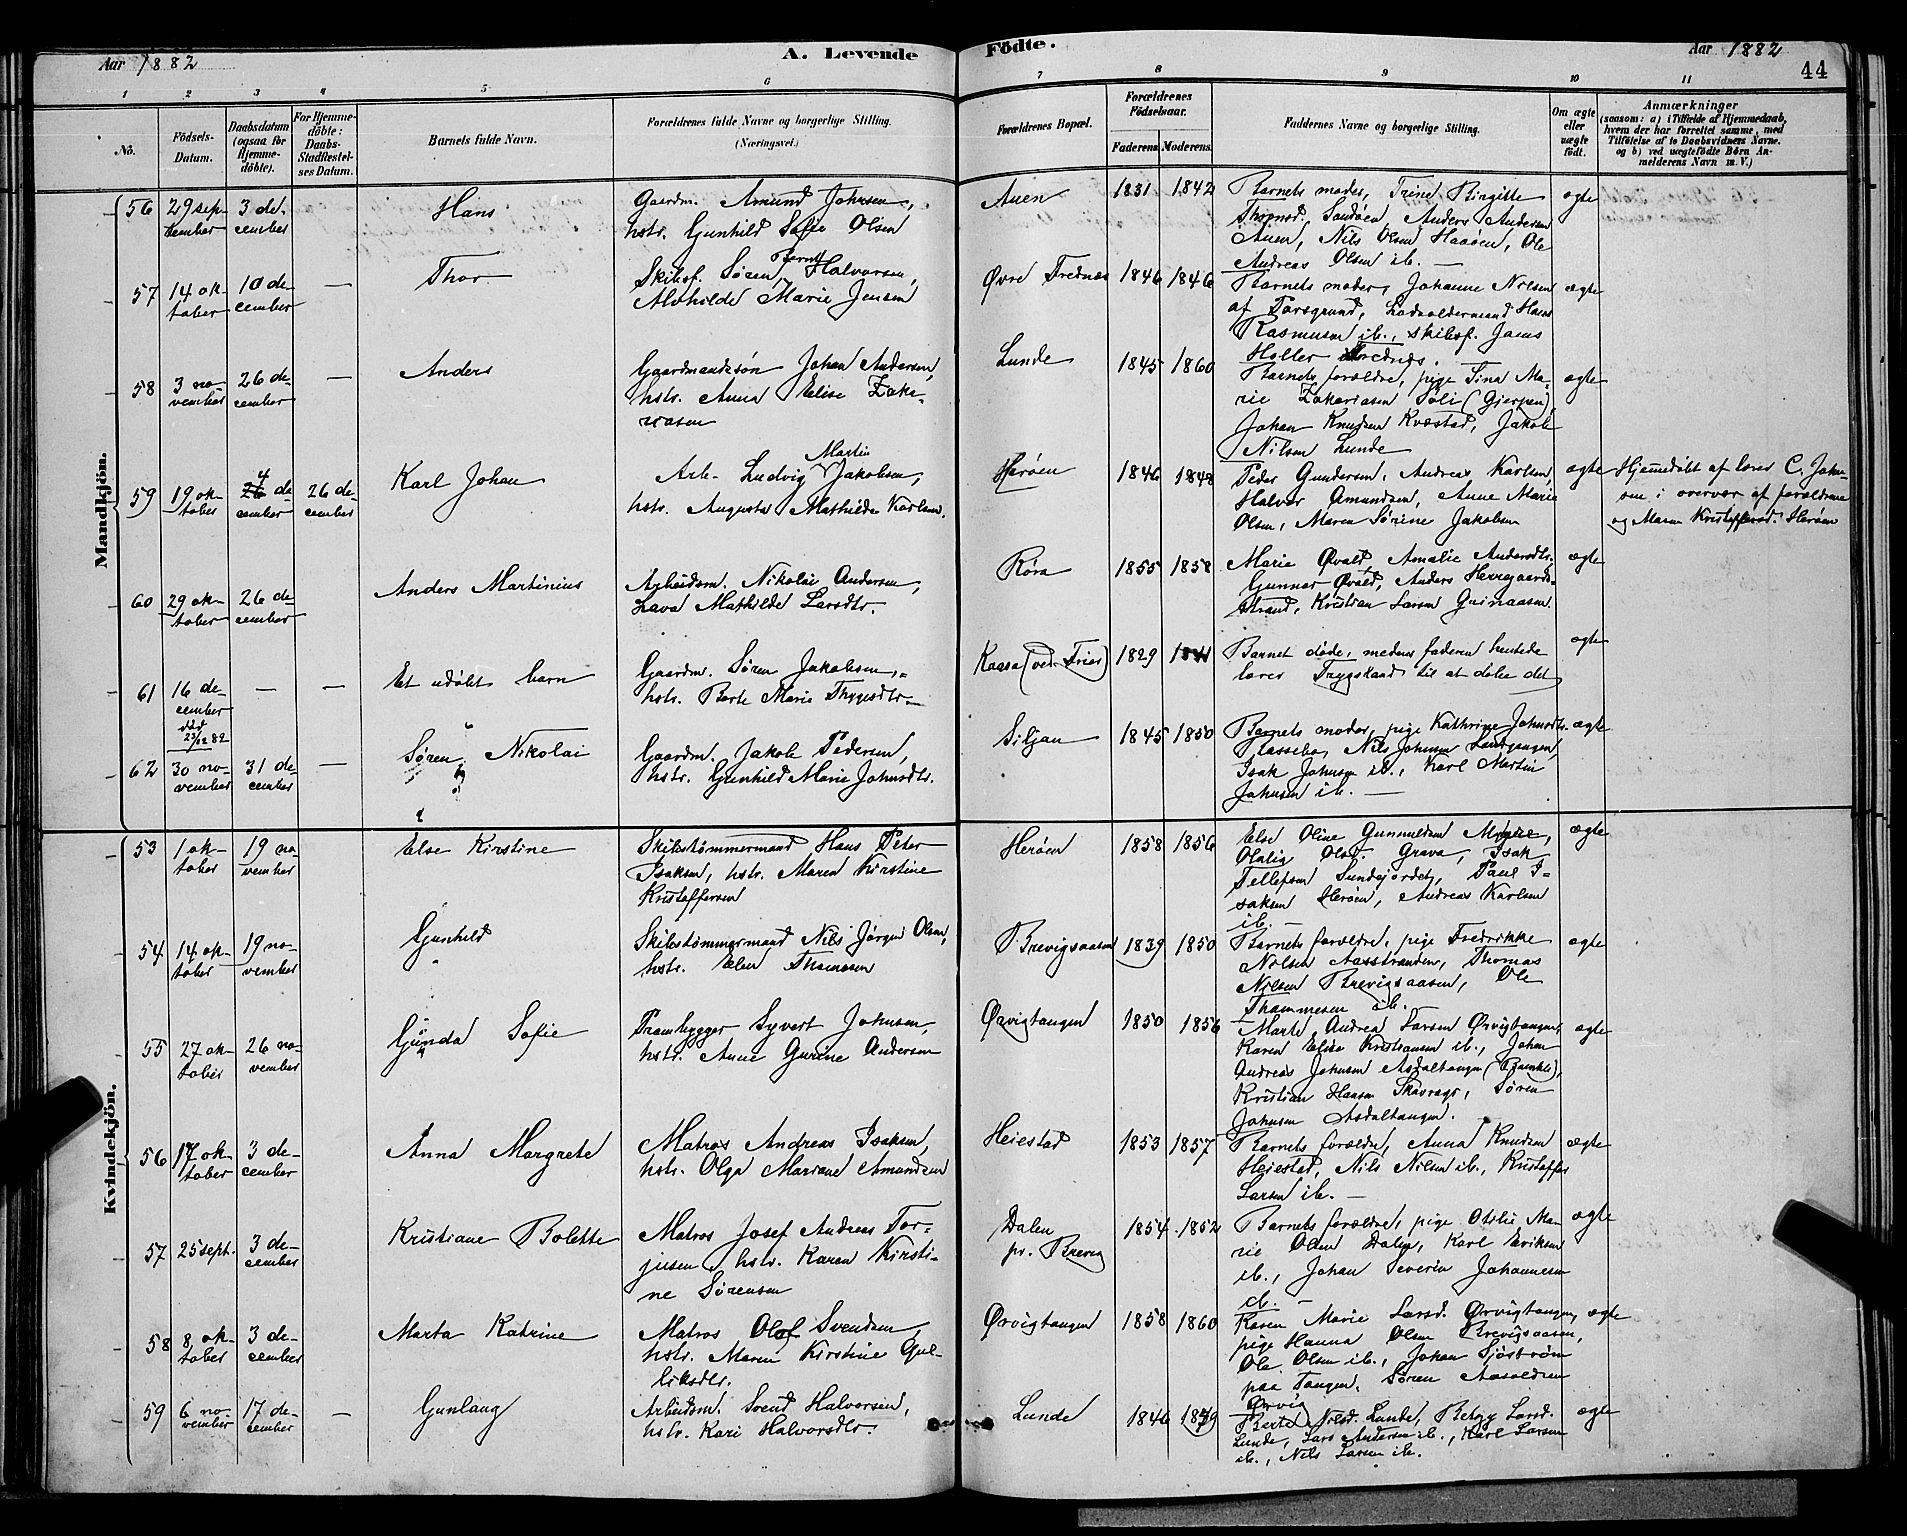 Aar 1882
A. Levende
Födte.
Aar 1882
44
1 2 3 4 5 6 7 8 9 10 11
No.
Födsels-
Datum.
Daabsdatum
(ogsaa for
Hjemme-
döbte).
For Hjemme-
döbte:
Daabs-
Stadfæstel-
ses Datum.
Barnets fulde Navn.
Forældrenes fulde Navne og borgerlige Stilling.
(Næringsvei.)
Forældrenes Bopæl.
Forældrenes
Födselsaar.
Faderens Moderens
Faddernes Navne og borgerlige Stilling.
Om ægte
eller
uægte
födt.
Anmærkninger
(saasom: a) i Tilfælde af Hjemmedaab,
hvem der har forrettet samme, med
Tilföielse af to Daabsvidners Navne.
og b) ved uægtefödte Börn An-
melderens Navn m. V.)
Mandkjön.
56
29 sep-
tember
3 de-
cember
Hans
Gaardm. Amund Johnsen,
hstr. Gunhild Sofie Olsen
Auen
1831
1842
Barnets moder, Trine Birgitte
Thronsd. Sandöen, Anders Andersen
Auen, Nils Olsen Haaöen, Ole
Andreas Olsen ib. —
ægte
57
14 ok-
tober
10 de-
cember
—
Thor
Skibsf. Søren Bernt Halvorsen,
Alvhilde Marie Jensen
Øvre Frednæs
1846
1846
Barnets moder, Johanne Nilsen
af Porsgrund, Lodsoldermand Hans
Rasmusen ib., skibsf. Jams
Holler Frednæs.
ægte
58
3 no-
vember
26 de-
cember
—
Anders
Gaardmandssøn Johan Andersen,
hstr. Anna Elise Zaka-
riasen
Lunde
1845
1860
Barnets forældre, pige Tina Ma-
rie Zakariasen Søli (Gjerpen)
Johan Knudsen Kvæstad, Jakob
Nilsen Lunde
ægte
59
19 ok-
tober
4 de-
cember
26 de-
cember
Karl Johan
Arb. Ludvig Martin Jakobsen,
hstr. Augusta Mathilde Karlsen.
Herøen
1846
1848
Peder Gundersen, Andreas Karlsen,
Halvor Amundsen, Anne Marie
Olsen, Maren Sørine Jakobsen
ægte
Hjemdøbt af lærer C. John-
sen i overvær af forældrene
og Maren Kristoffersd. Herøen
60
29 ok-
tober
26 de-
cember
Anders Martinius
Arbeidsm. Nikolai Andersen,
Lava Mathilde Larsdtr.
Röra
1855
1858
Marie Øvald, Amalie Andersdtr.
Gunnar Øvald, Anders Herregaards-
Strand, Kristian Larsen Grinaasen.
ægte
61
16 de-
cember
død
23/12 82
—
—
Et udøbt barn
Gaardm. Søren Jakobsen,
hstr. Berte Marie Thygesdtr.
Kaasa (ved Frier)
1829
1841
Barnet døde, medens faderen hentede
lærer Trygstand til at døbe det
ægte
62
30 no-
vember
31 de-
cember
—
Søren Nikolai
Gaardm. Jakob Pedersen,
hstr. Gunhild Marie Johnsdtr.
Siljan
1845
1850
Barnets moder, pige Kathrine Johnsdtr.
Plassebo, Nils Johnsen Landgangen,
Isak Johnsen ib., Karl Martin
Johnsen ib. —
ægte
Kvindekjön.
53
1 ok-
tober
19 no-
vember
Else Kirstine
Skibstømmermand Hans Peter
Isaksen, hstr. Maren Kirstine
Kristoffersen
Herøen
1858
1856
Else Oline Gunnuldsen
Olalig Olsd. Grava, Isak
Tellefsen Sundsjordet, Paul I-
saksen Herøen, Andreas Karlsen
ib. —
ægte
54
14 ok-
tober
19 no-
vember
Gunhild
Skibstømmermand Nils Jørgen Olsen,
hstr. Elen Thomasen
Brevigsaasen
1839
1850
Barnets forældre, pige Fredrikke
Nilsen Aasstranden, Thomas
Nilsen Brevigsaasen, Ole
Thommesen ib. —
ægte
55
27 ok-
tober
26 no-
vember
Gunda Sofie
Prambygger Syvert Johnsen,
hstr. Anne Gurine Andersen
Ørvigtangen
1850
1856
Marte Andrea Larsen Ørvigtangen,
Karen Elise Kristiansen ib., Johan
Andreas Johnsen Asdaltangen (Bamble),
Kristian Hansen Skavrager, Søren
Johnsen Asdaltangen.
ægte
56
17 ok-
tober
3 de-
cember
Anna Margrete
Matros Andreas Isaksen,
hstr. Olga Mariane Amundsen
Heiestad
1853
1857
Barnets forældre, Anna Knudsen
Heiestad, Nils Nilsen ib., Kristoffer
Larsen ib. —
ægte
57
25 sept.
3 de-
cember
Kristiane Bolette
Matros Josef Andreas Tor-
jusen, hstr. Karen Kirsti-
ne Sørensen
Dalen
pr. Brevig
1854
1852
Barnets forældre, pige Otilie Ma-
rie Olsen Dalen, Karl Eriksen
ib., Johan Severin Johannesen
ib. —
ægte
58
8 ok-
tober
3 de-
cember
Marta Katrine
Matros Olaf Svendsen,
hstr. Maren Kirstine Gul-
liksdtr.
Ørvigtangen
1858
1860
Karen Marie Larsd. Ørvigtangen,
pige Hanna Olsen Brevigsaasen,
Ole Olsen ib., Johan Sjöström
paa Tangen, Søren Aasoldsen
Ørvig
ægte
59
6 no-
vember
17 de-
cember
—
Gunlaug
Arbeidsm. Svend Halvorsen,
hstr. Kari Halvorsdtr.
Lunde
1846
1849
Berte Nilsd. Lunde, Betzy Larsd.
Lunde, Lars Andersen ib., Karl Larsen
ib., Nils Larsen ib.
ægte